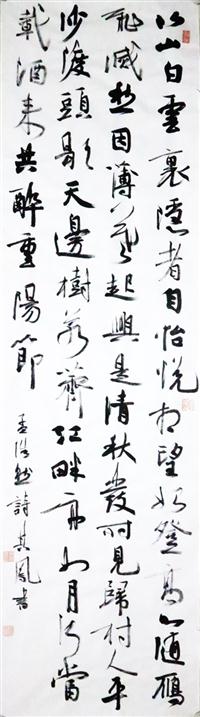 北山白雲裏隱者自怡悅相望始登高心隨鴈
飛滅愁因薄暮起興是清秋發時見歸村人平
沙渡頭歇天邊樹若薺江畔舟如月何當
載酒來共醉重陽節
孟浩然詩其鳳書